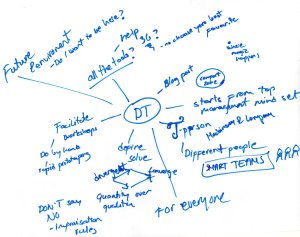 Future
environment
- Do I want to be here?
all the tools?
help
- no choose your best
favourite
Blog post
comfort zone
where
magic
happens
DT
starts from top
management mind set
T-person
Different people
SMART TEAMS
Facilitate
workshops
Do by hand
rapid prototyping
define
solve
divergent
converge
Quantity over
qualities
DON'T say
NO
- improvisation
rules
For everyone